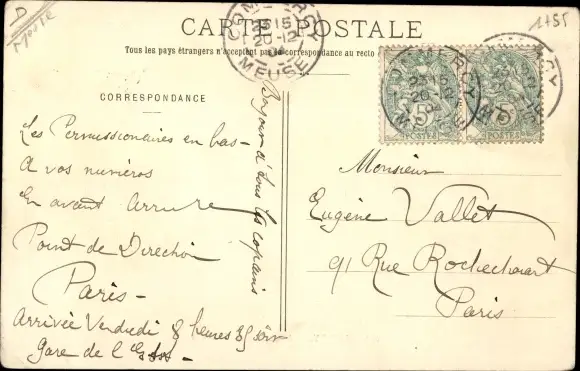 D
Meuse
1455
CARTE POSTALE
Tous les pays étrangers n'acceptent pas la correspondance au recto
COMMERCY
23 15
20 -12
MEUSE
CORRESPONDANCE
Les Permissionaires en bas-
A vos numéros
En avant Arrure
Point de Direction
Paris -
Arrivée Vendredi 8 heures 35 soir
Gare de l'Est -
Bonjour à tous les copains
5c
POSTES
5c
POSTES
Monsieur
Eugène Vallet
91 Rue Rochechouart
Paris